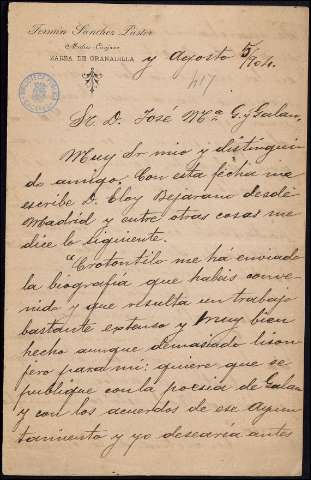 Fermín Sánchez Pastor
Médico Cirujano
ZARZA DE GRANADILLA
y agosto 5/904.
417
Sr. D. José Mª G. y Galan.
Muy Sr mio y distingui-
do amigo. Con esta fecha me
escribe D. Eloy Bejarano desde
Madrid y entre otras cosas me
dice lo siguiente.
"Crotontilo me há enviado
la biografía que habeis conve-
nido y que resulta un trabajo
bastante extenso y muy bien
hecho aunque demasiado lison-
jero para mi: quiere que se
publique con la poesia de Galan
y con los acuerdos de ese Ayun-
tamiento y yo desearía antes